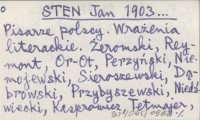 STEN Jan 1903...
Pisarze polscy. Wrażenia
literackie. Żeromski, Rey-
mont, Or-Ot, Perzyński, Nie-
mojewski, Sieroszewski, Dą-
browski, Przybyszewski, Niedź-
wiecki, Kasprowicz, Tetmajer,